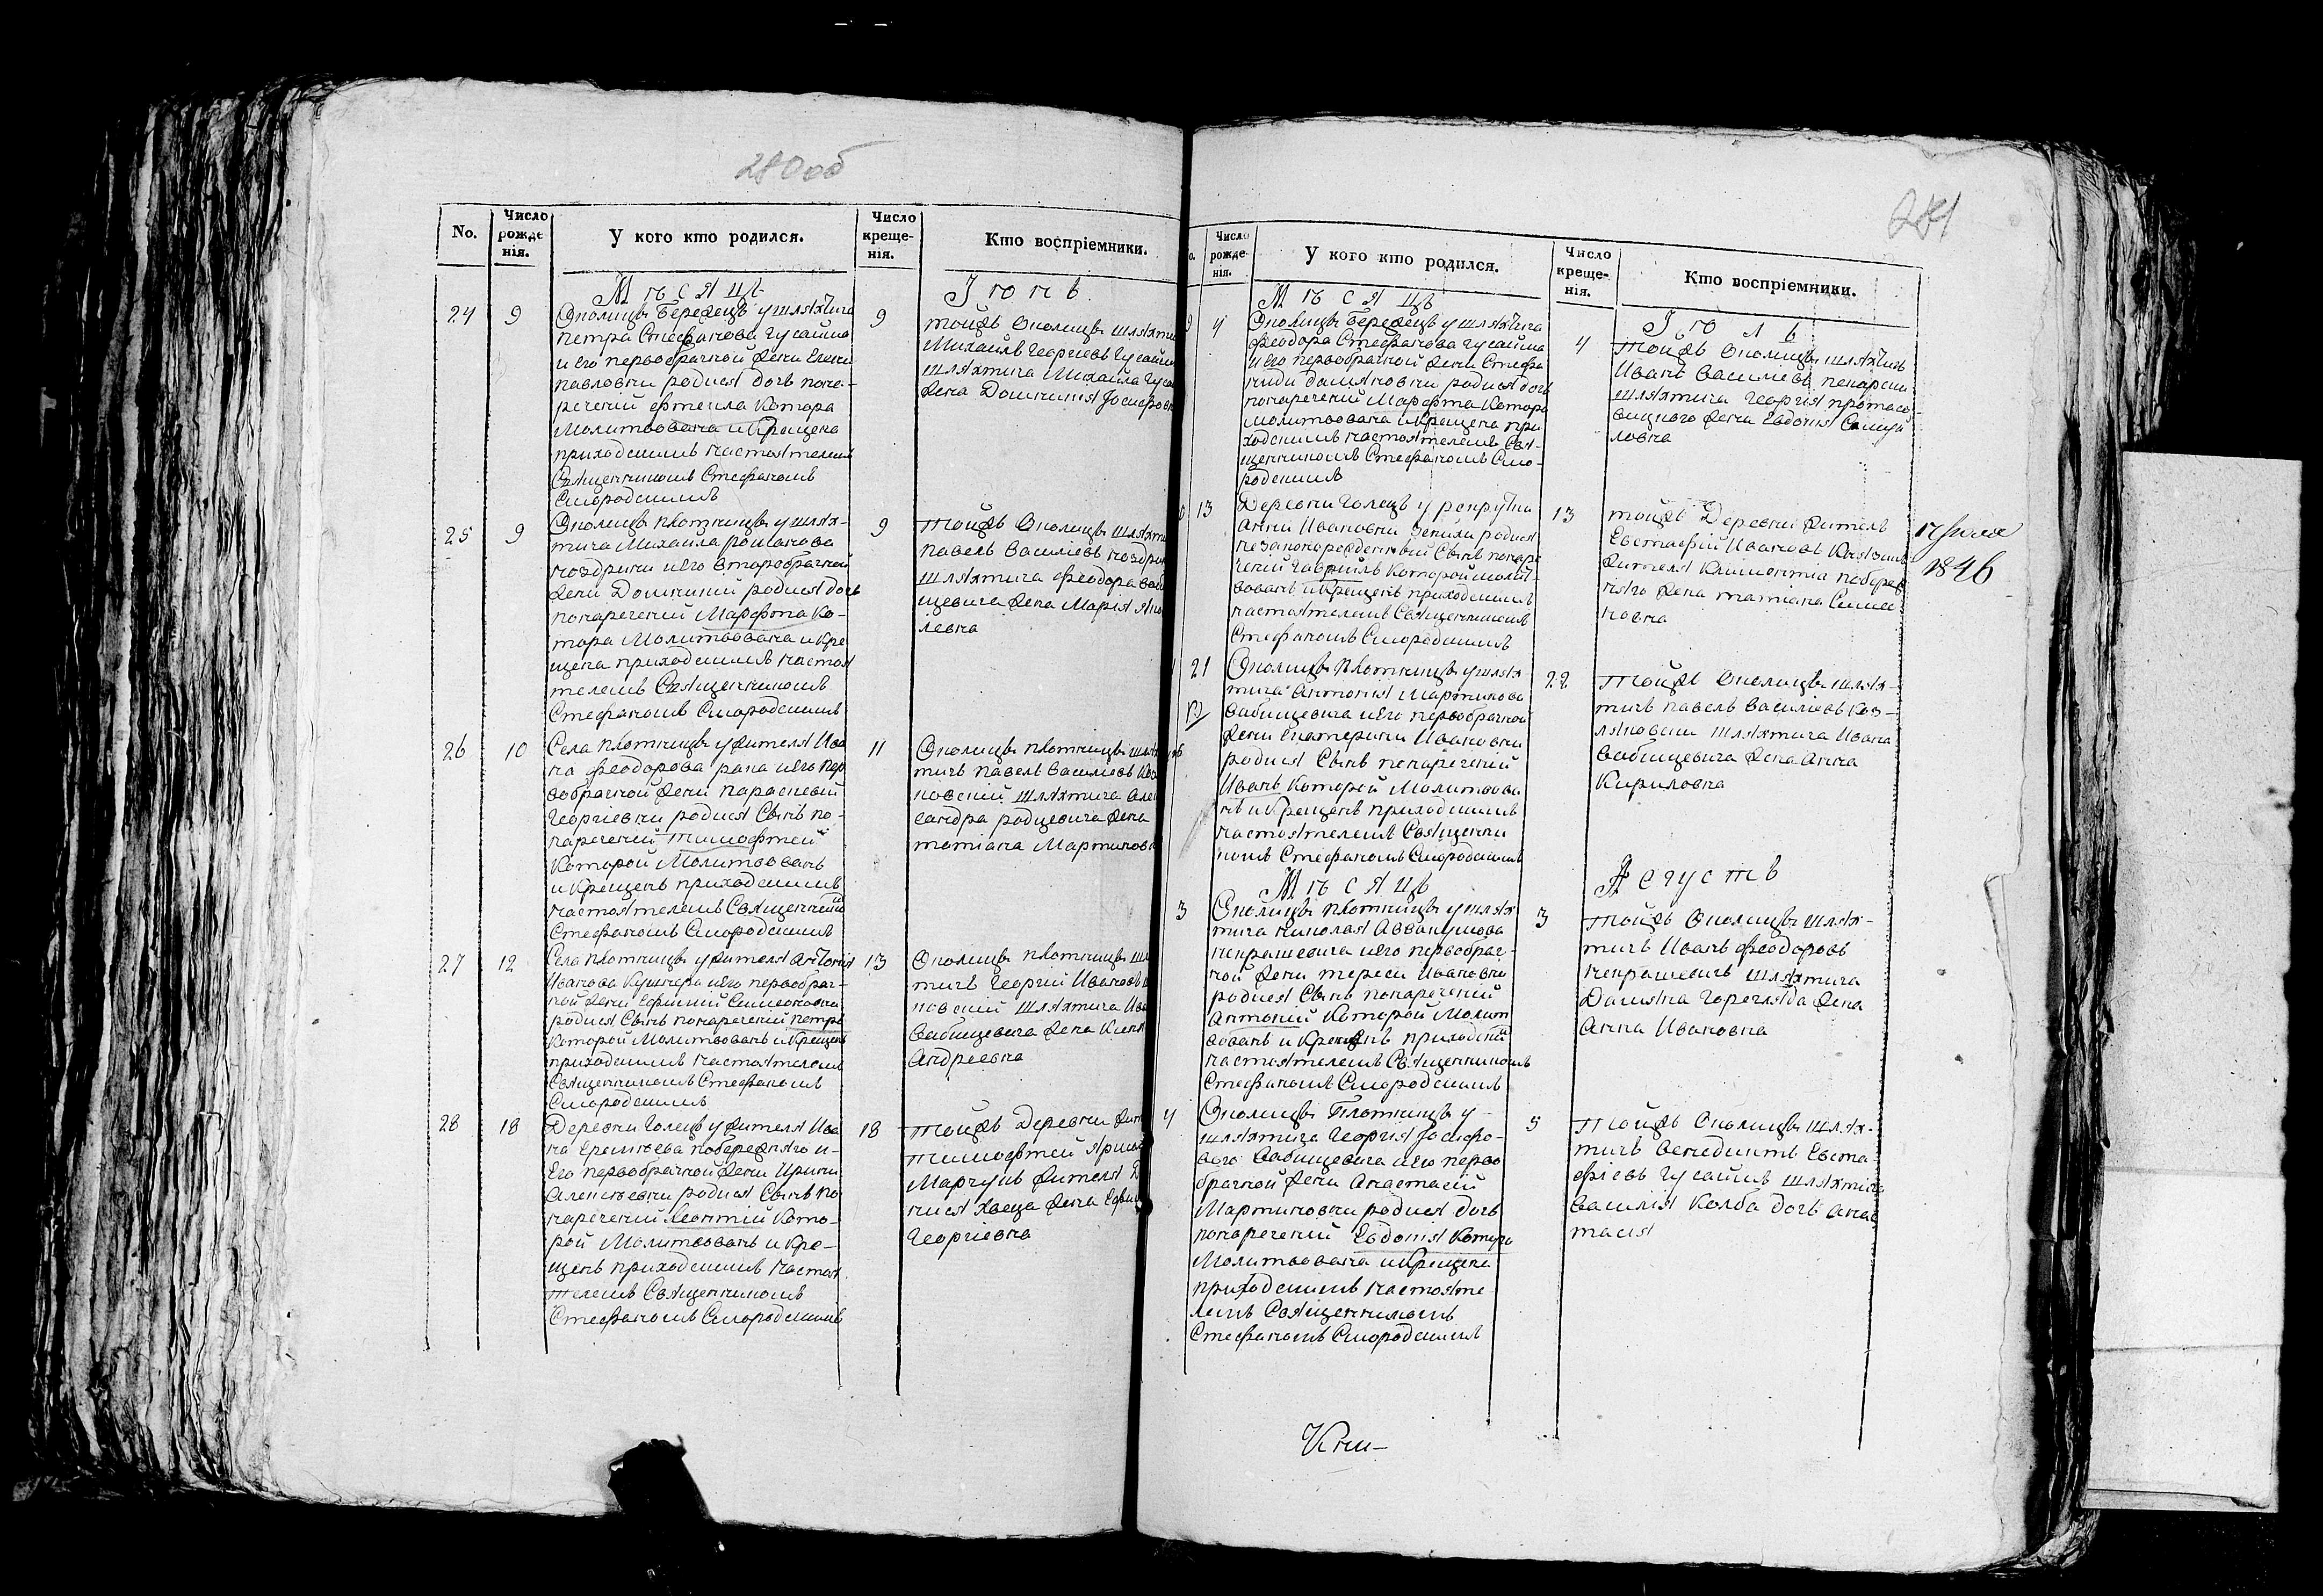 280об
No.
Число рожденія.
У кого кто родился.
Число крещенія.
Кто воспріемники.
Мѣсяцъ
Іюнь
24
9
Околицы Бережецъ у шляхтича
петра Стефанова Гусайма
и его первобрачной жены Елены
павловны родися дочь наре-
реченій фтекла Котора
Молитвована и Крещена
приходскимъ настоятелемъ
Священникомъ Стефаномъ
Смородскимъ
9
тойжъ Околицы
Михайлъ Георгіевъ
шляхтича Михайла
жена Домникия
25
9
Околицы плотницы у шлях-
тича Михайла романова
ноздрини и его второбрачной
жены Домникіи родися дочь
понареченій Марфта Ко-
тора Молитвована и Кре
щена приходскимъ настоя
телемъ Священникомъ
Стефаномъ Смородскимъ
9
тойжъ Околицы
павелъ Василіевъ
шляхтича феодора
щевича жена Марія
левна
26
10
Села плотницы у жителя Ива
на феодорова рака и его пер
вобрачной жены параскевіи
Георгіевны родися Сынъ по-
нареченій тимофтей
Которой Молитвованъ
и Крещенъ приходскимъ
настоятелемъ Священникомъ
Стефаномъ Смородскимъ
11
Околицы плотницы
тичъ павелъ Василіевъ
новскій шляхтича
сандра родцевича жена
татіана
27
12
Села плотницы у жителя Антонія
Иванова Кушнира и его первобрач-
ной жены Ефиміи Симеоновны
родися Сынъ понареченій петръ
Которой Молитвованъ и Крещенъ
приходскимъ настоятелемъ
Священникомъ Стефаномъ
Смородскимъ
13
Околицы плотницы
тичъ Георгій
новскій шляхтича
Бабищевича жена
Андреевна
28
18
Деревни Голецъ у жителя Ива
на Ермиліева побережняго и
Его первобрачной жены Ирины
Алексѣевны родися Сынъ по
нареченій Леонтій Кото-
рой Молитвованъ и Кре-
щенъ приходскимъ настоя
телемъ Священникомъ
Стефаномъ Смородскимъ
18
тойжъ Деревни
тимофтей
Марчукъ жителя
хвеща жена
Георгіевна
281
Число рожденія.
У кого кто родился.
Число крещенія.
Кто воспріемники.
Мѣсяцъ
Іюль
9
4
Околицы Бережецъ у шляхтича
феодора Стефанова Гусайма
и Его первобрачной жены Стефа
ниды дамяновны родися дочь
понареченій Марфта Котора
Молитвована и Крещена при
ходскимъ настоятелемъ Свя-
щенникомъ Стефаномъ Смо-
родскимъ
4
тойжъ Околицы шляхтичъ
Иванъ Василіевъ
шляхтича Георгія протасо-
вицкого жена Евдокія Самуй
ловна
0
13
Деревни Голецъ у рекрутки
Анны Ивановны родися
незаконорожденный Сынъ понаре
ченій Гавріилъ Которой молит-
вованъ и Крещенъ приходскимъ
настоятелемъ Священникомъ
Стефаномъ Смородскимъ
13
тойжъ Деревни житель
Евстафій Ивановъ
жителя Климонтія побереж
няго жена татіана Симео
новна
17 Іюля
1846
1
21
Околицы плотницы у шлях
тича Антонія Мартинова
Бабищевича и Его первобрачной
жены Екатерины Ивановны
родися Сынъ понареченій
Иванъ Которой Молитвова
нъ и Крещенъ приходскимъ
настоятелемъ Священни
комъ Стефаномъ Смородскимъ
22
тойжъ Околицы шлях-
тичъ павелъ Василіевъ Коз-
ляковски шляхтича Ивана
Бабищевича жена Анна
Кириловна
Мѣсяцъ
Августъ
3
Околицы плотницы у шлях
тича николая Аввакумова
некрашевича и Его первобрач-
ной жены тереси Ивановны
родися Сынъ понареченій
Антоній Которой Молит
вованъ и Крещенъ приходскимъ
настоятелемъ Священникомъ
Стефаномъ Смородскимъ
3
тойжъ Околицы шлях-
тичъ Иванъ феодоровъ
некрашевичъ шляхтича
Дамяна Горегляда жена
Анна Ивановна
4
Околицы Плотницы у
шляхтича Георгія Іосифо-
вого Бабищевича и Его перво
брачной жены Анастасіи
Мартиновны родися дочь
понареченій Евдокія Котора
Молитвована и Крещена
приходскимъ настояте
лемъ Священникомъ
Стефаномъ Смородскимъ
5
тойжъ Околицы шлях-
тичъ Бенедиктъ Евста-
фіевъ Гусаймъ шляхтича
Василія Колба дочь Анас
тасія
Кни-